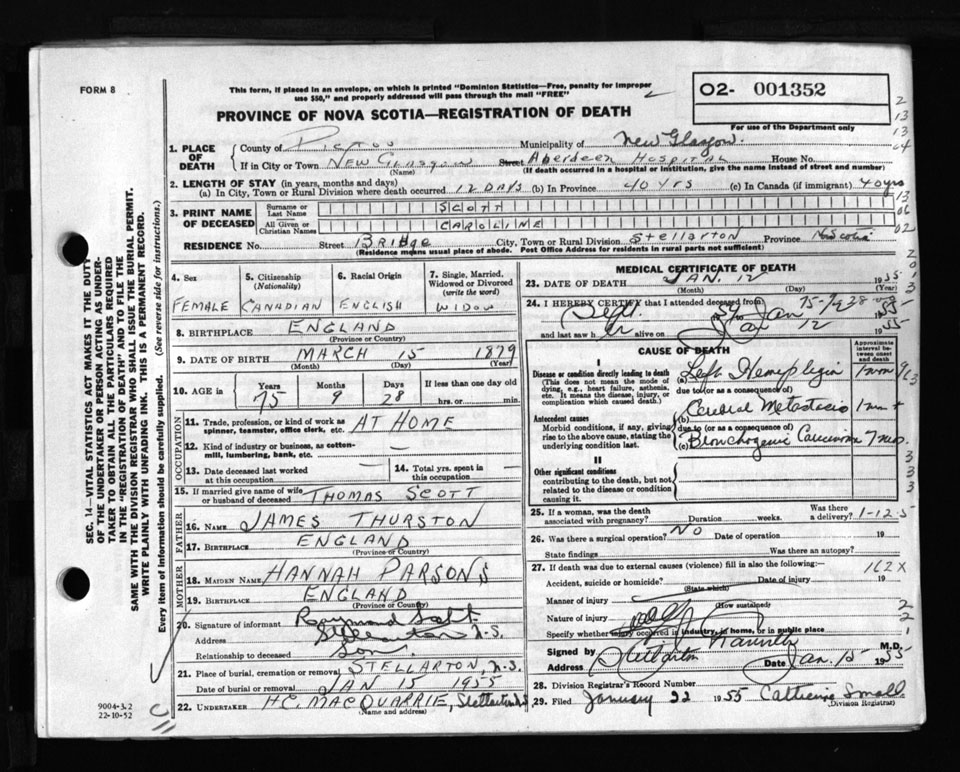 FORM 8
This form, if placed in an envelope, on which is printed "Dominion Statistics—Free, penalty for improper
use $50," and properly addressed will pass through the mail "FREE"
PROVINCE OF NOVA SCOTIA—REGISTRATION OF DEATH
O2- 001352
For use of the Department only
SEC. 14—VITAL STATISTICS ACT MAKES IT THE DUTY
OF THE UNDERTAKER OR PERSON ACTING AS UNDER-
TAKER TO OBTAIN ALL THE PARTICULARS REQUIRED
IN THE "REGISTRATION OF DEATH" AND TO FILE THE
SAME WITH THE DIVISION REGISTRAR WHO SHALL ISSUE THE BURIAL PERMIT.
WRITE PLAINLY WITH UNFADING INK. THIS IS A PERMANENT RECORD.
Every item of information should be carefully supplied. (See reverse side for instructions.)
1. PLACE OF DEATH
County of Pictou Municipality of New Glasgow.
If in City or Town New Glasgow Street Aberdeen Hospital House No.
(Name) (If death occurred in a hospital or institution, give the name instead of street and number)
2. LENGTH OF STAY (in years, months and days)
(a) In City, Town or Rural Division where death occurred 12 DAYS (b) In Province 40 YRS (c) In Canada (if immigrant) 40 yrs
3. PRINT NAME OF DECEASED
Surname or Last Name SCOTT
All Given or Christian Names CAROLINE
RESIDENCE No. Street BRIDGE City, Town or Rural Division Stellarton Province N. Scotia
(Residence means usual place of abode. Post Office Address for residents in rural parts not sufficient)
4. Sex FEMALE
5. Citizenship (Nationality) CANADIAN
6. Racial Origin ENGLISH
7. Single, Married, Widowed or Divorced (write the word) WIDOW
8. BIRTHPLACE ENGLAND
(Province or Country)
9. DATE OF BIRTH MARCH 15 1879
(Month) (Day) (Year)
10. AGE in Years Months Days If less than one day old
75 9 28 hrs. or min.
OCCUPATION
11. Trade, profession, or kind of work as spinner, teamster, office clerk, etc. AT HOME
12. Kind of industry or business, as cotton-mill, lumbering, bank, etc. —
13. Date deceased last worked at this occupation —
14. Total yrs. spent in this occupation —
15. If married give name of wife or husband of deceased THOMAS SCOTT
FATHER
16. NAME JAMES THURSTON
17. BIRTHPLACE ENGLAND
(Province or Country)
MOTHER
18. MAIDEN NAME HANNAH PARSONS
19. BIRTHPLACE ENGLAND
(Province or Country)
20. Signature of informant Raymond Scott
Address Stellarton N.S.
Relationship to deceased Son.
21. Place of burial, cremation or removal STELLARTON, N.S.
Date of burial or removal JAN 15 1955
22. UNDERTAKER H.C. MACQUARRIE, Stellarton N.S.
(Name and address)
9004-3.2
22-10-52
MEDICAL CERTIFICATE OF DEATH
23. DATE OF DEATH JAN. 12 1955
(Month) (Day) (Year)
24. I HEREBY CERTIFY that I attended deceased from
Sept. 54 to Jan 1955
and last saw her alive on Jan 12 1955
75-9-28
CAUSE OF DEATH
Approximate interval between onset and death
I
Disease or condition directly leading to death
(This does not mean the mode of dying, e.g., heart failure, asthenia, etc. It means the disease, injury, or complication which caused death.)
(a) Left Hemiplegia
due to (or as a consequence of)
Antecedent causes
Morbid conditions, if any, giving rise to the above cause, stating the underlying condition last.
(b) Cerebral Metastasis
due to (or as a consequence of)
(c) Bronchogenic Carcinoma 7 mos.
II
Other significant conditions contributing to the death, but not related to the disease or condition causing it.
25. If a woman, was the death associated with pregnancy? Duration weeks. Was there a delivery?
1-12-5
26. Was there a surgical operation? No Date of operation 19
State findings Was there an autopsy?
27. If death was due to external causes (violence) fill in also the following:
162X
Accident, suicide or homicide? Date of injury 19
(State which)
Manner of injury
(How sustained)
Nature of injury
Specify whether injury occurred in industry, in home, or in public place
Signed by M.D.
Address Stellarton Date Jan. 15 1955
28. Division Registrar's Record Number
29. Filed January 22 1955 Catherine Small
(Division Registrar)